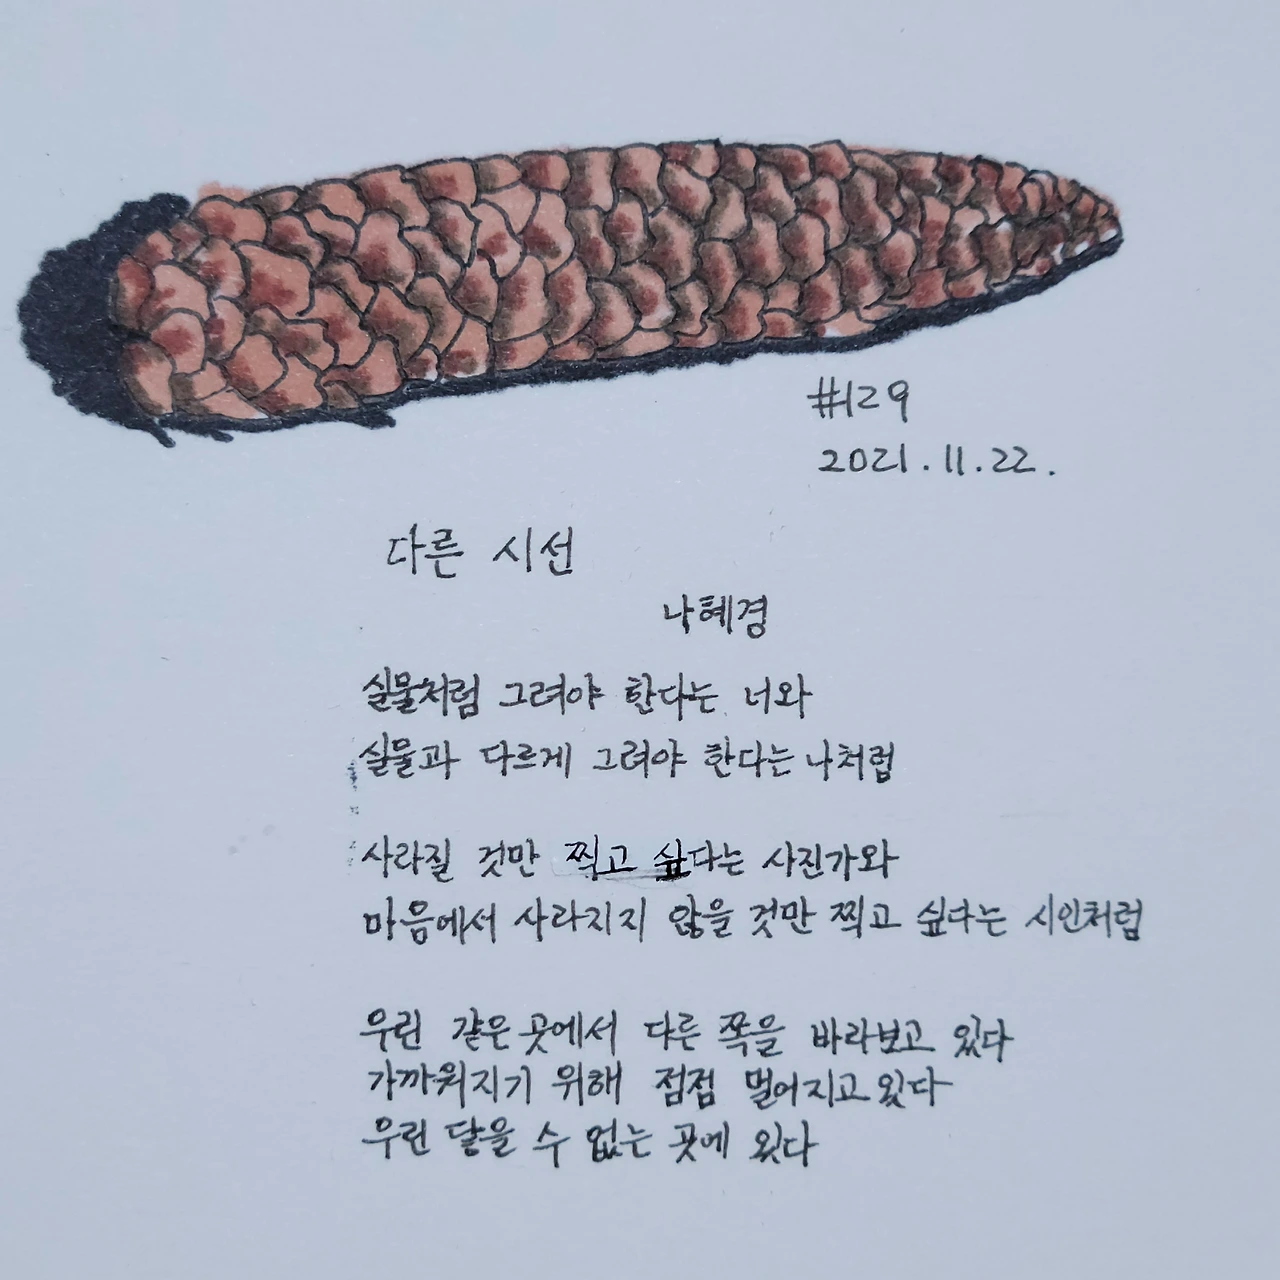 #129
2021.11.22.
다른 시선
나혜경
실물처럼 그려야 한다는 너와
실물과 다르게 그려야 한다는 나처럼
사라질 것만 찍고 싶다는 사진가와
마음에서 사라지지 않을 것만 찍고 싶다는 시인처럼
우린 같은 곳에서 다른 쪽을 바라보고 있다
가까워지기 위해 점점 멀어지고 있다
우린 닿을 수 없는 곳에 있다